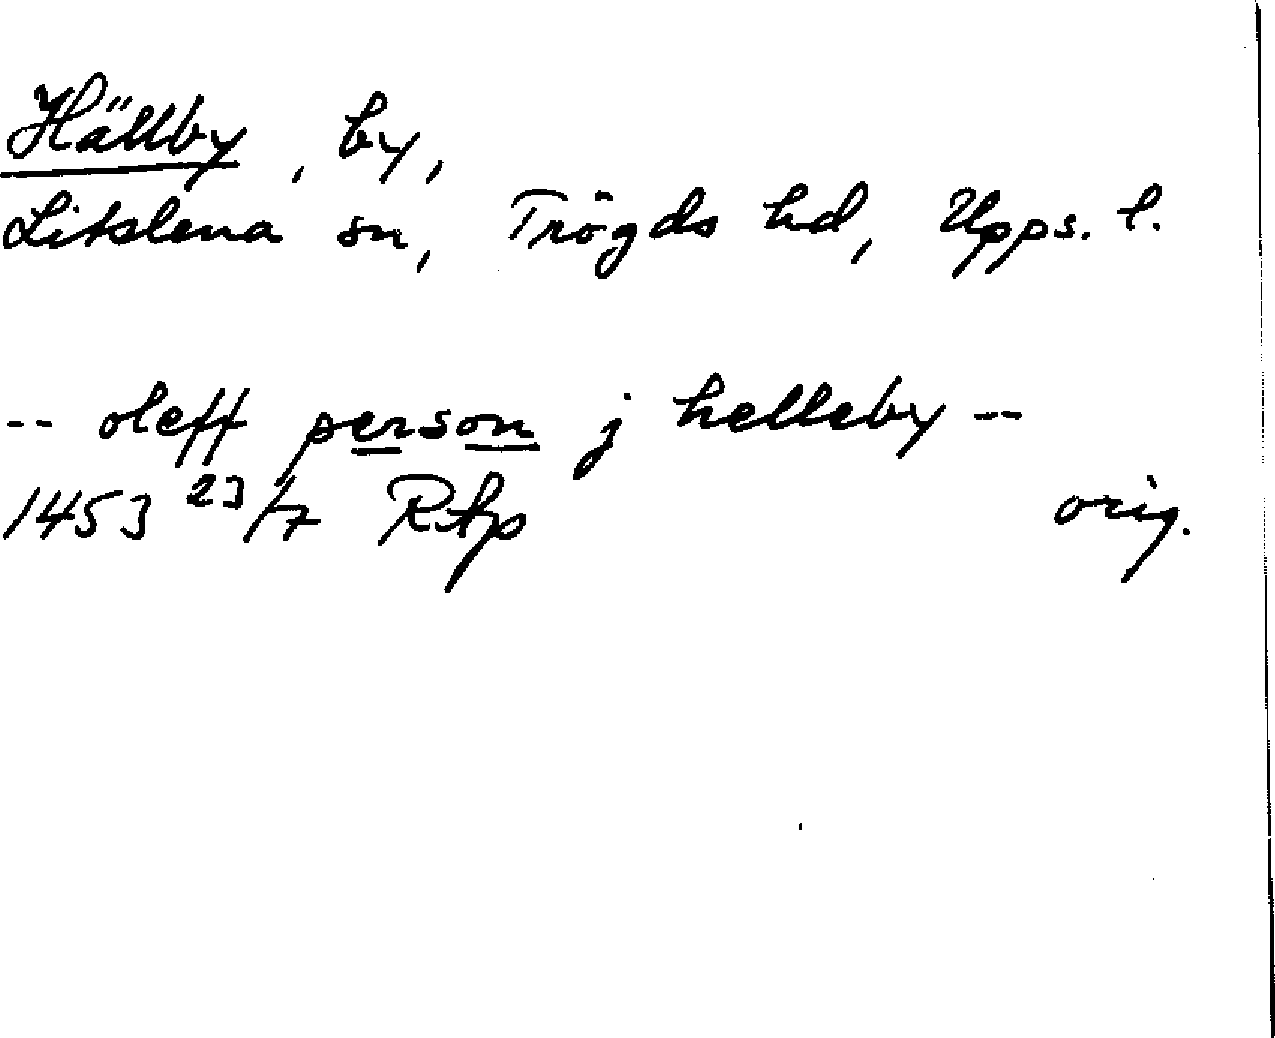 Hällby, by,
Litslena sn, Trögds hd, Upps. l.
-- oleff person j helleby --
1453 23/7 RAp orig.